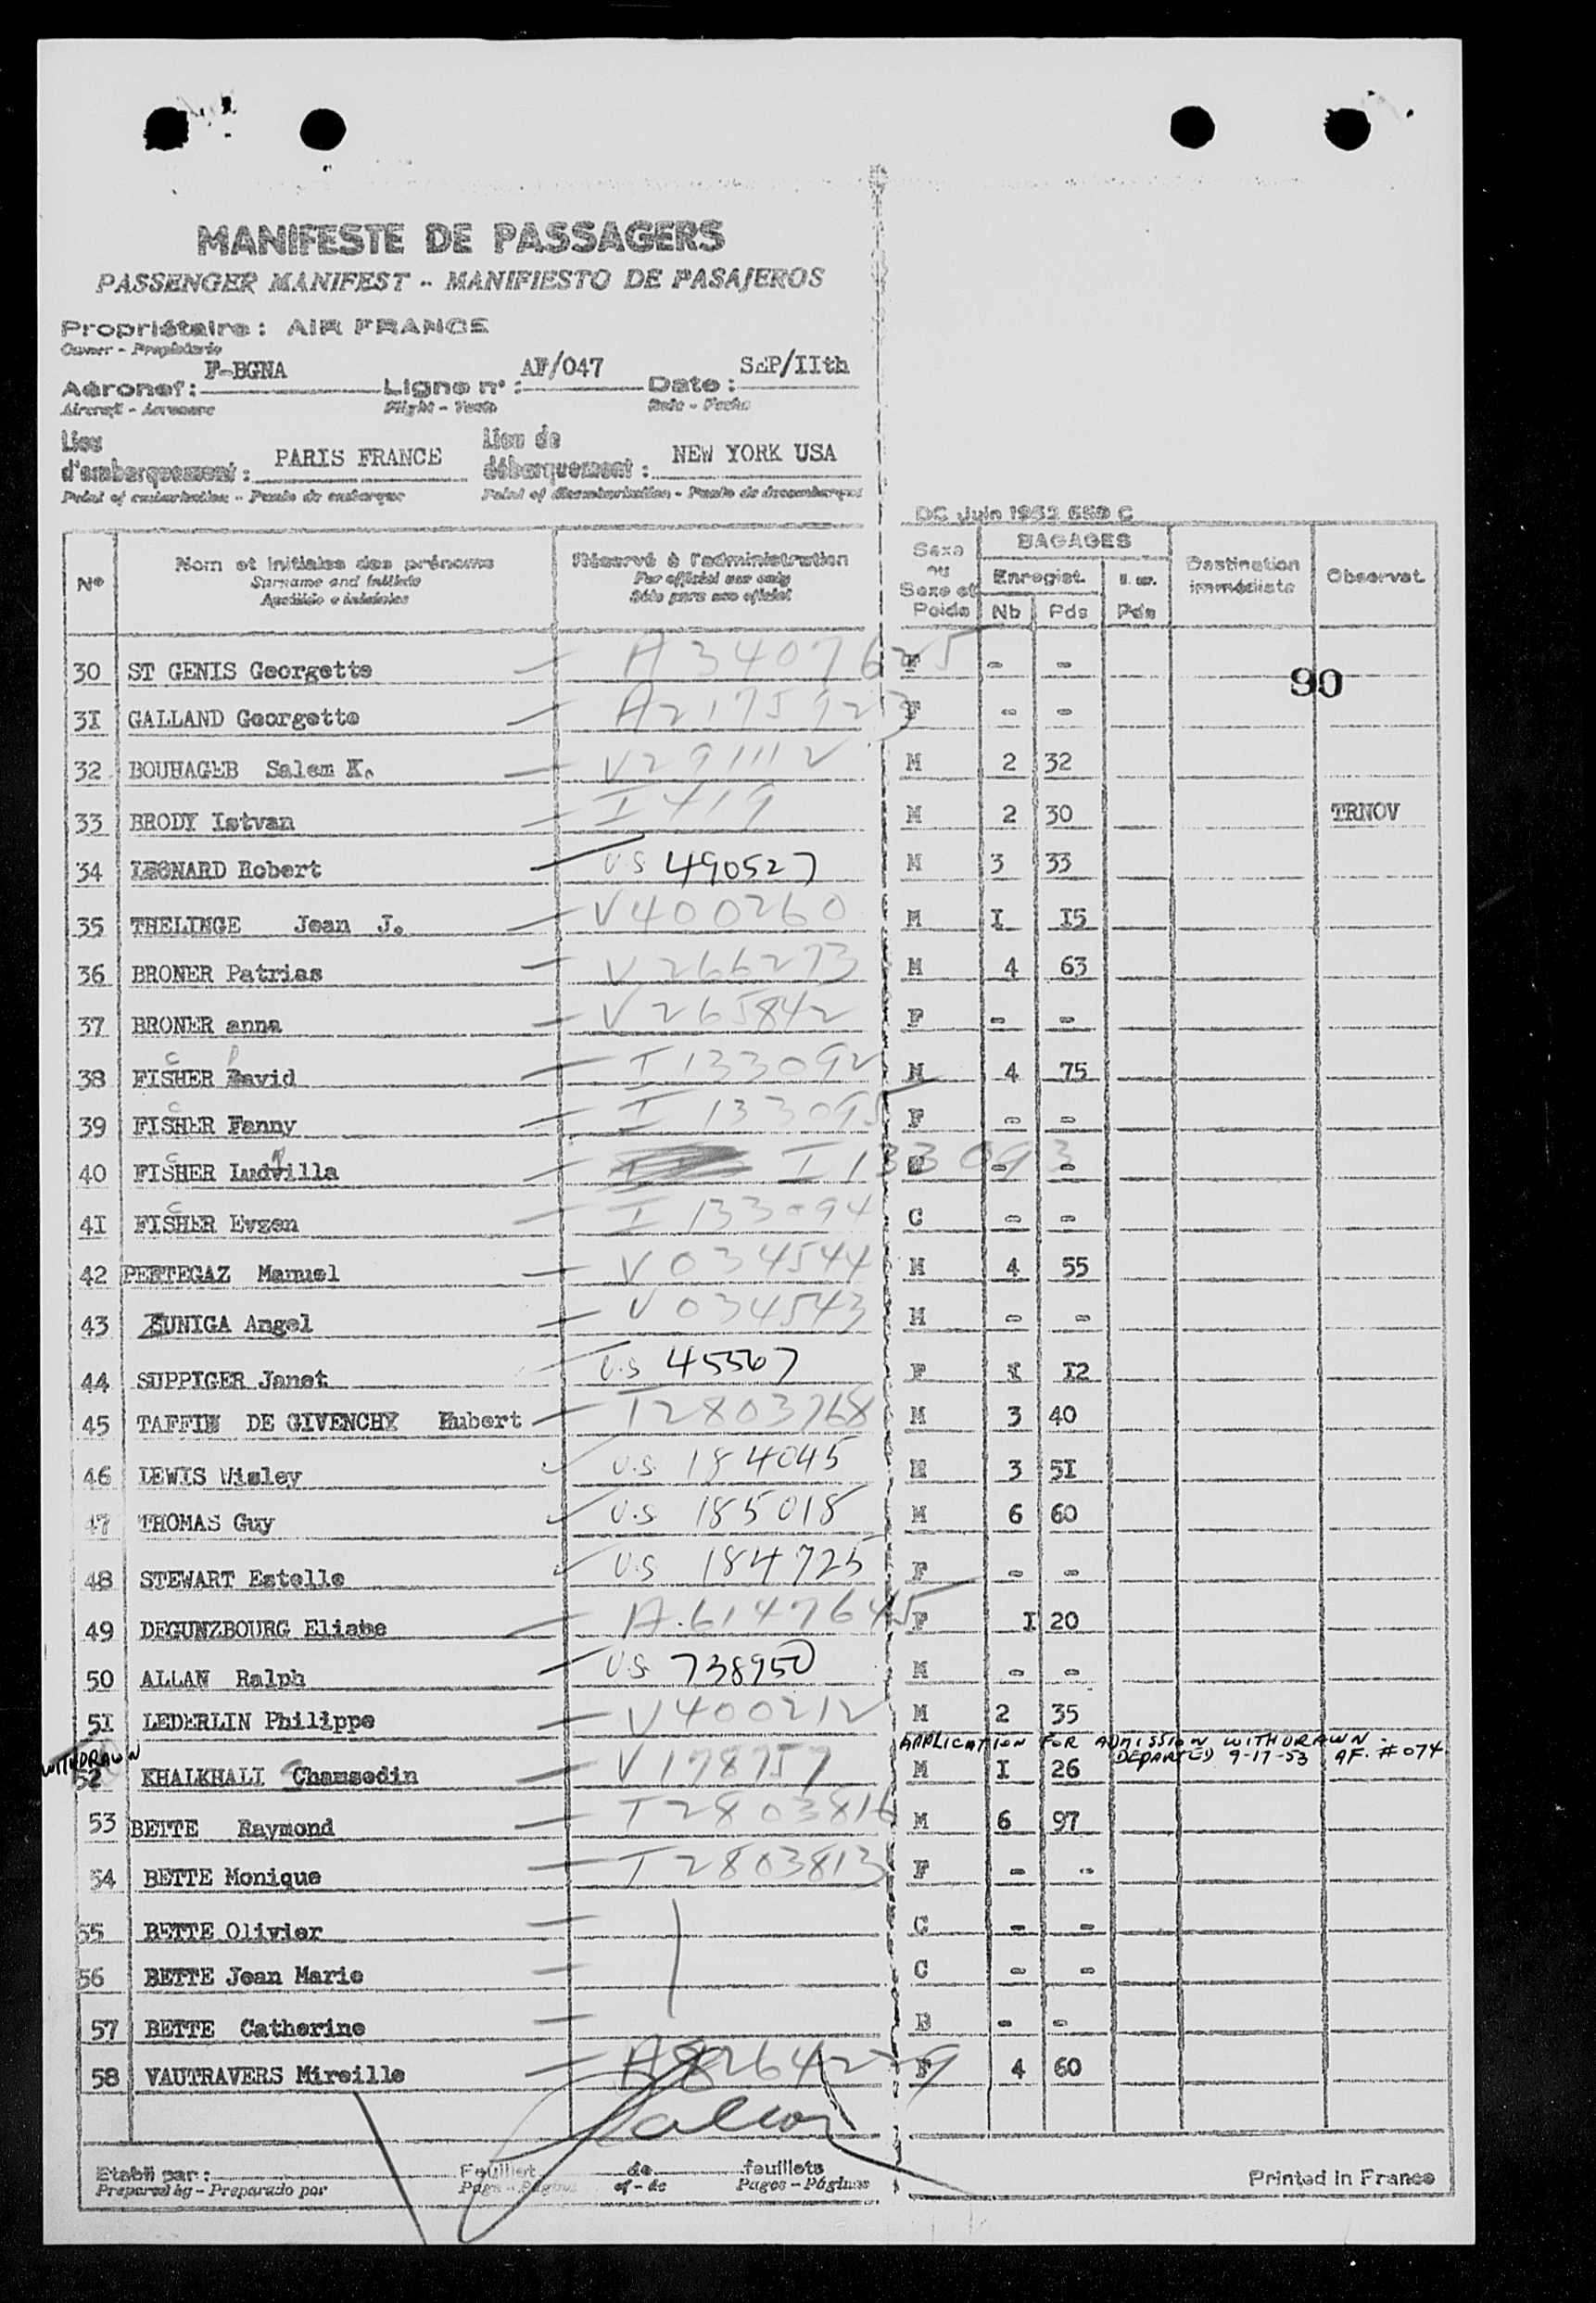 MANIFESTE DE PASSAGERS
PASSENGER MANIFEST - MANIFIESTO DE PASAJEROS
Propriétaire : AIR FRANCE
Owner - Propietario
Aéronef : F-BGNA Ligne n° : AF/047 Date : SEP/IIth
Aircraft - Aeronave Flight - Vuelo Date - Fecha
Lieu d'embarquement : PARIS FRANCE Lieu de débarquement : NEW YORK USA
Point of embarkation - Punto de embarque Point of disembarkation - Punto de desembarque
DC Juin 1952 659 C
N° Nom et initiales des prénoms Réservé à l'administration Sexe ou Sexe et Poids BAGAGES Enregist. Nb Pds Pds Destination immédiate Observat.
Surname and initials For official use only
Apellido e iniciales Sólo para uso oficial
90
30 ST GENIS Georgette A3407625 F - -
3I GALLAND Georgette A2175923 F - -
32 BOUHAGEB Salem K. V291112 M 2 32
33 BRODY Istvan I419 M 2 30 TRNOV
34 LEONARD Robert U.S 490527 M 3 33
35 THELINGE Jean J. V400260 M I I5
36 BRONER Patrias V266273 M 4 63
37 BRONER anna V265842 F - -
38 FISCHER David I133092 M 4 75
39 FISCHER Fanny I133095 F - -
40 FISCHER Ludvilla I133093 - -
4I FISCHER Evzen I133094 C - -
42 PERTEGAZ Manuel V034544 M 4 55
43 ZUNIGA Angel V034543 M - -
44 SUPPIGER Janet U.S 45567 F I I2
45 TAFFIN DE GIVENCHY Hubert I2803768 M 3 40
46 LEWIS Wisley U.S. 184045 M 3 5I
47 THOMAS Guy U.S 185018 M 6 60
48 STEWART Estelle U.S 184725 F - -
49 DEGUNZBOURG Eliabe A.6147645 F I 20
50 ALLAN Ralph U.S. 738950 M - -
5I LEDERLIN Philippe V400212 M 2 35
APPLICATION FOR ADMISSION WITHDRAWN.
WITHDRAWN DEPARTED 9-17-53 AF. #074
52 KHALKHALI Chamsedin V178757 M I 26
53 BETTE Raymond I2803816 M 6 97
54 BETTE Monique I2803813 F - -
55 BETTE Olivier C - -
56 BETTE Jean Marie C - -
57 BETTE Catherine B - -
58 VAUTRAVERS Mireille A8264279 F 4 60
Etabli par : Feuillet de feuillets Printed in France
Prepared by - Preparado por Page - Página of - de Pages - Páginas